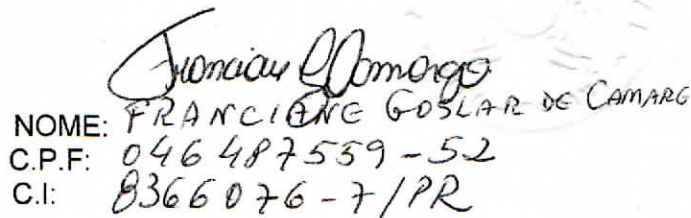 Franciane G Camargo
NOME: FRANCIANE GOSLAR DE CAMARG
C.P.F: 046487559-52
C.I: 8366076-7/PR